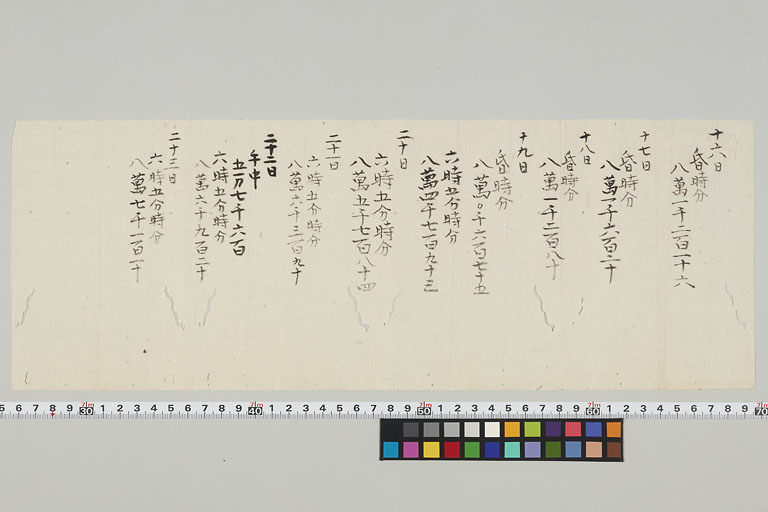 十六日
昏時分
八萬一千二百一十六
十七日
昏時分
八萬一千六百二十
十八日
昏時分
八萬一千二百八十
十九日
昏時分
八萬〇千六百七十五
二十日
六時五分時分
八萬四千七百九十三
六時五分時分
八萬五千七百八十四
二十一日
六時五分時分
八萬六千三百九十
二十二日
午中
五万七千六百
六時五分時分
八萬六千九百二十
二十三日
六時五分時分
八萬七千一百一十
5 6 7 8 9 30 1 2 3 4 5 6 7 8 9 40 1 2 3 4 5 6 7 8 9 50 1 2 3 4 5 6 7 8 9 60 1 2 3 4 5 6 7 8 9 70